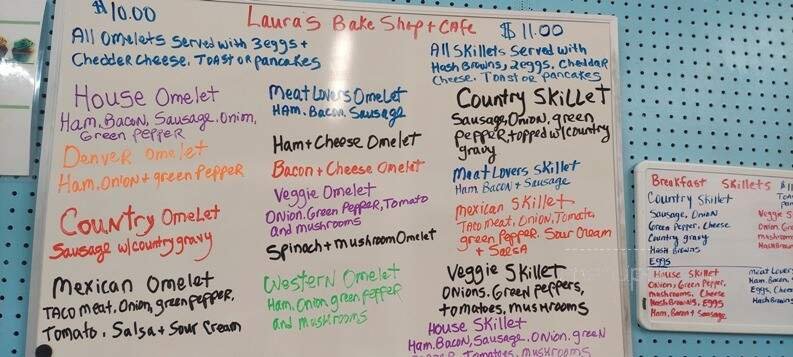 $10.00
Laura's Bake Shop + Cafe
$11.00
All Omelets Served with 3 eggs +
Chedder Cheese. Toast or Pancakes
All Skillets Served with
Hash Browns, 2 eggs, Cheddar
Cheese. Toast or pancakes
House Omelet
Ham, Bacon, Sausage, Onion,
Green Pepper
Denver Omelet
Ham, Onion + green Pepper
Country Omelet
Sausage w/country gravy
Mexican Omelet
Taco meat, Onion, green pepper,
Tomato, Salsa + Sour Cream
Meat Lovers Omelet
Ham, Bacon, Sausage
Ham + Cheese Omelet
Bacon + Cheese Omelet
Veggie Omelet
Onion, Green Pepper, Tomato
and mushrooms
Spinach + mushroom Omelet
Western Omelet
Ham, Onion, green pepper
and mushrooms
Country Skillet
Sausage, Onion, green
pepper, topped w/country
gravy
Meat Lovers Skillet
Ham Bacon + Sausage
Mexican Skillet
Taco meat, Onion, Tomato,
green pepper. Sour Cream
+ Salsa
Veggie Skillet
Onions, Green Peppers,
tomatoes, mushrooms
House Skillet
Ham, Bacon, Sausage, Onion, green
Pepper, Tomatoes, mushrooms
Breakfast Skillets
Country Skillet
Sausage, Onion
Green Pepper, Cheese
Country gravy
Hash Browns
Eggs
House Skillet
Onions, Green Pepper,
mushrooms, Cheese
Hash Browns, Eggs
Ham, Bacon + Sausage
Veggie
Onion
mushroom
Hash Brown
Meat Lovers
Ham, Bacon,
Eggs, Cheese
Hash Browns